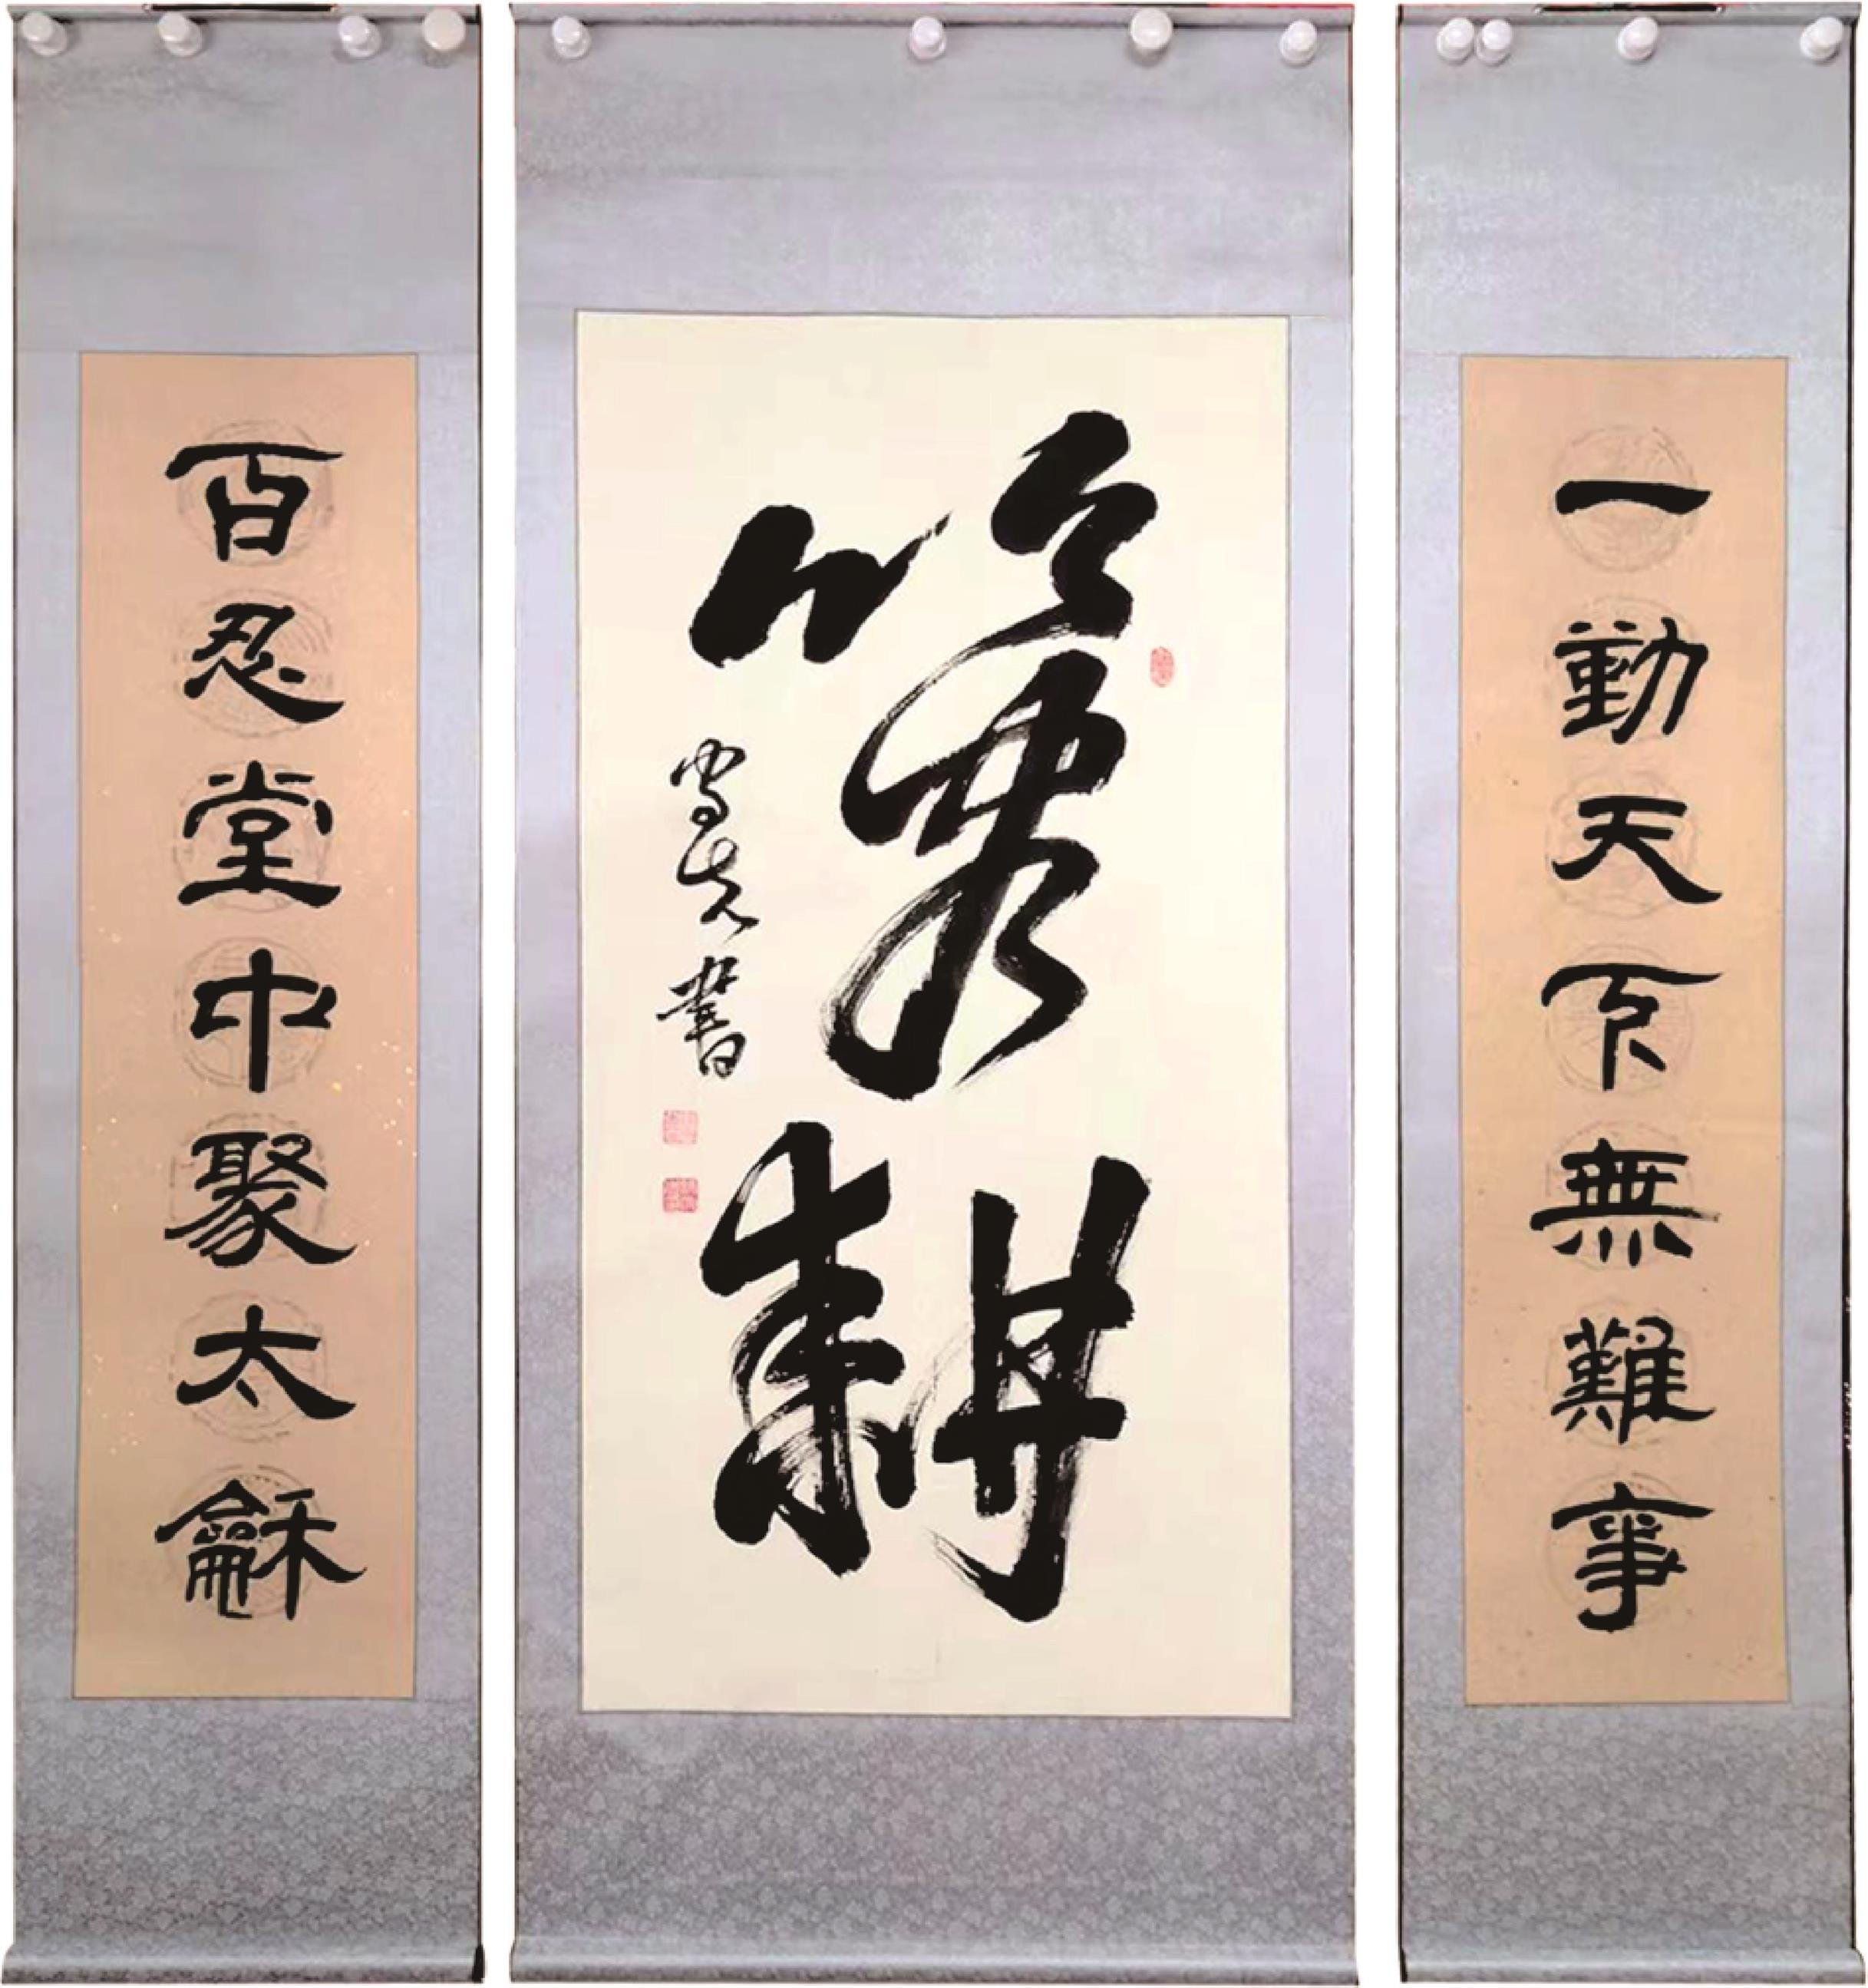 一勤天下無難事
耕
書
百忍堂中聚太龢